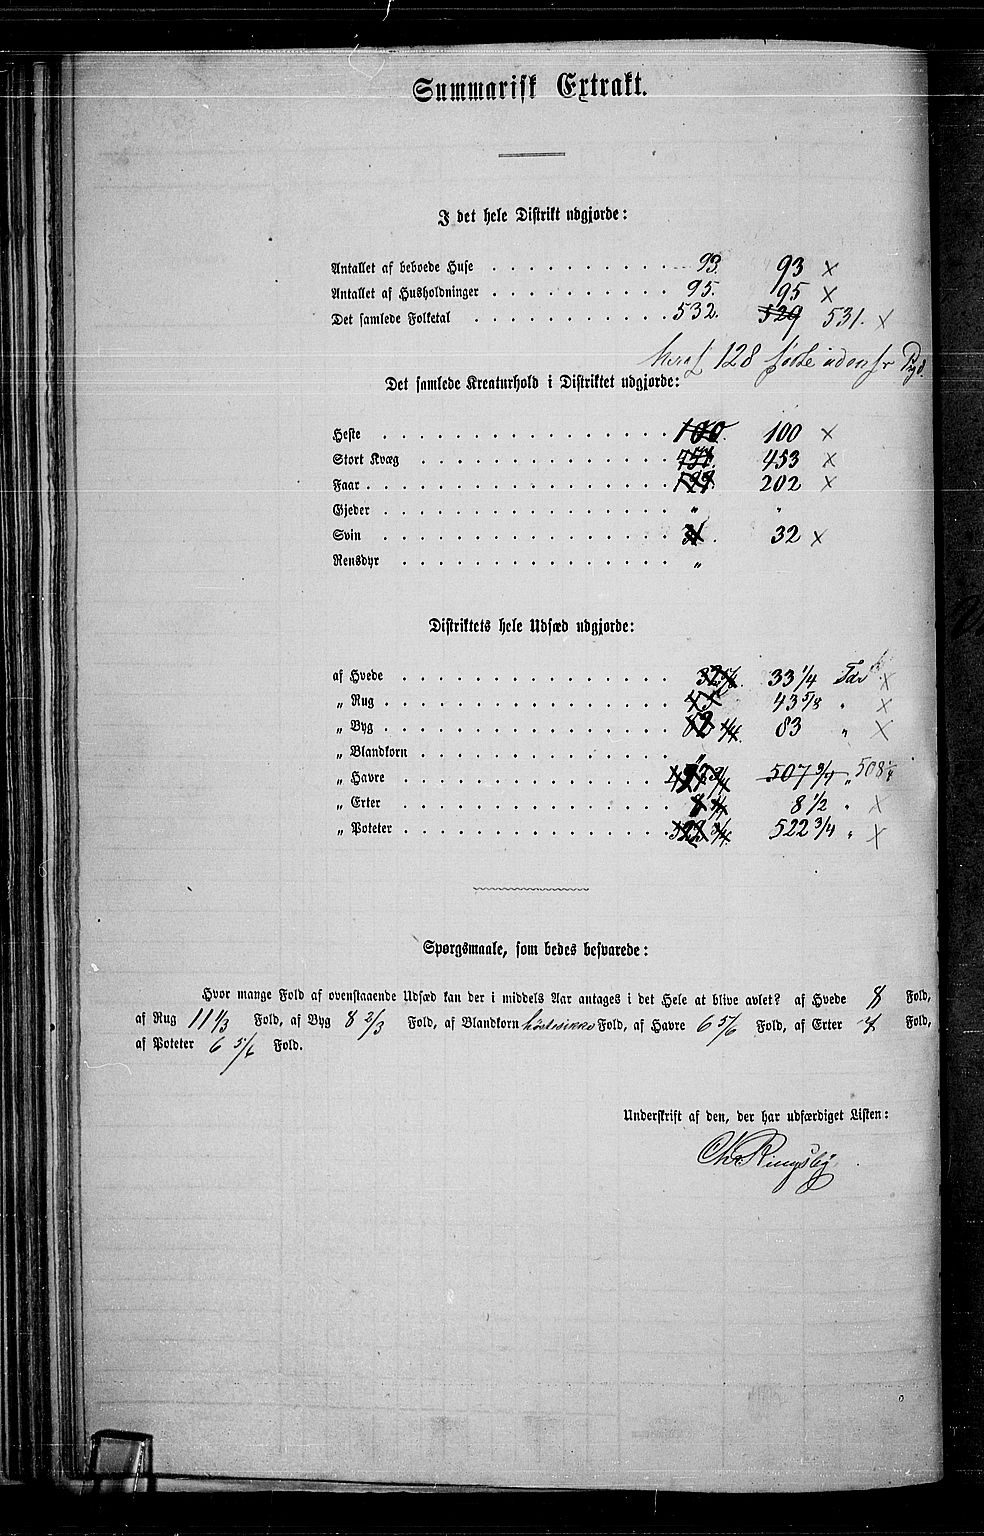 Summarisk Extrakt.
I det hele Distrikt udgjorde:
Antallet af beboede Huse . . . . . . . . . . 93. 93 ×
Antallet af Husholdninger . . . . . . . . . . 95. 95 ×
Det samlede Folketal . . . . . . . . . . . 532. 529 531. ×
hvoraf 128 födte udenfr
Det samlede Kreaturhold i Distriktet udgjorde:
Heste . . . . . . . . . . . . . . . . 100. 100 ×
Stort Kvæg . . . . . . . . . . . . . . 453 ×
Faar . . . . . . . . . . . . . . . . . 199. 202 ×
Gjeder . . . . . . . . . . . . . . . . „ „
Svin . . . . . . . . . . . . . . . . 31. 32 ×
Rensdyr . . . . . . . . . . . . . . . „
Distriktets hele Udsæd udgjorde:
af Hvede . . . . . . . . . . . . . . . 32 5/8 33 1/4 Tdr ×
„ Rug . . . . . . . . . . . . . . . . 43 5/8 „ ×
„ Byg . . . . . . . . . . . . . . . . 83 „ ×
„ Blandkorn . . . . . . . . . . . . . . „
„ Havre . . . . . . . . . . . . . . . 507 3/4 „ 508 1/4
„ Erter . . . . . . . . . . . . . . . 8 1/2 „ ×
„ Poteter . . . . . . . . . . . . . . . 522 3/4. 522 3/4 „ ×
Spørgsmaale, som bedes besvarede:
Hvor mange Fold af ovenstaaende Udsæd kan der i middels Aar antages i det Hele at blive avlet? af Hvede 8 Fold,
af Rug 11 1/3 Fold, af Byg 8 2/3 Fold, af Blandkorn Fold, af Havre 6 5/6 Fold, af Erter Fold,
af Poteter 6 5/6 Fold.
Underskrift af den, der har udfærdiget Listen:
Chr Ringsby